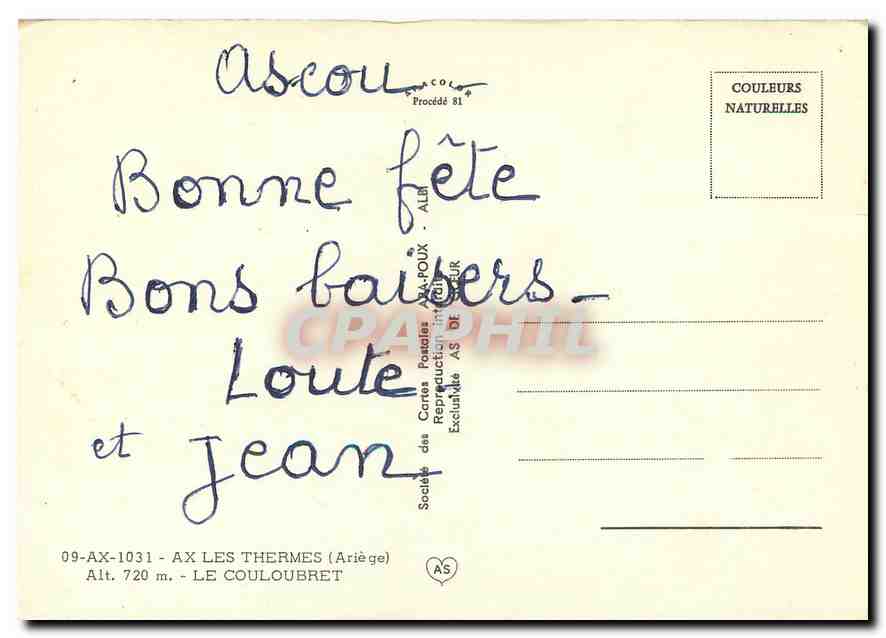 Ascou
APACOLOR
Procédé 81
COULEURS
NATURELLES
Bonne fête
Bons baisers -
Loute
et Jean
Société des Cartes Postales APA-POUX - ALBI
Reproduction interdite
Exclusivité AS DE CŒUR
CPAPHIL
09-AX-1031 - AX LES THERMES (Ariège)
Alt. 720 m. - LE COULOUBRET
AS